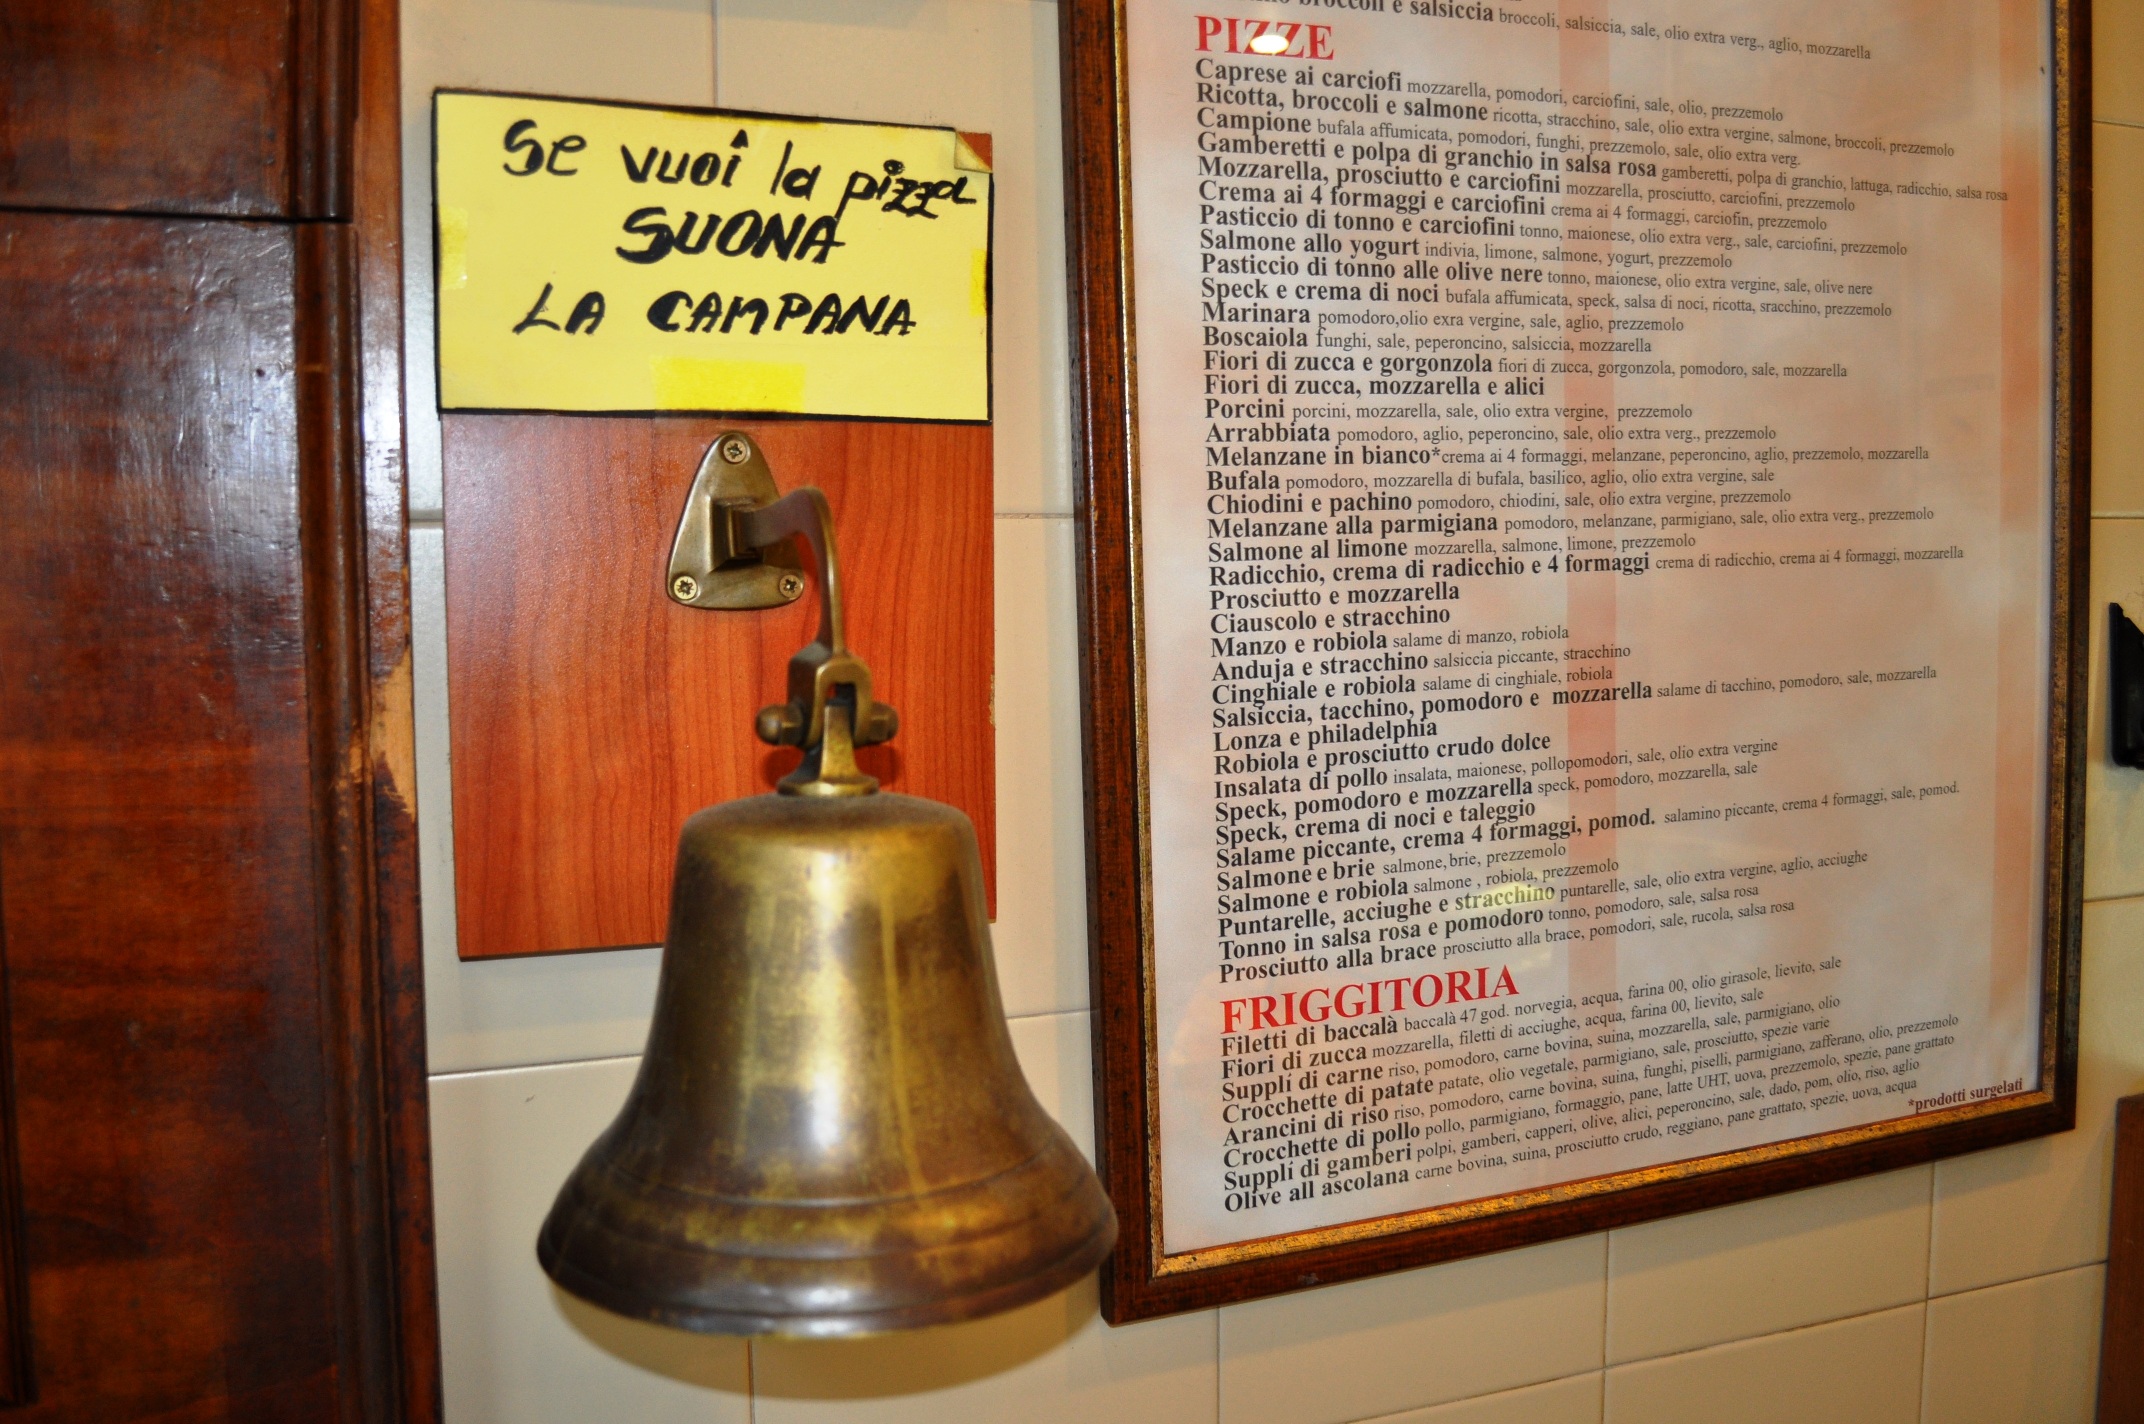 Se vuoi la pizza
SUONA
LA CAMPANA
broccoli e salsiccia broccoli, salsiccia, sale, olio extra verg., aglio, mozzarella
PIZZE
Caprese ai carciofi mozzarella, pomodori, carciofini, sale, olio, prezzemolo
Ricotta, broccoli e salmone ricotta, stracchino, sale, olio extra vergine, salmone, broccoli, prezzemolo
Campione bufala affumicata, pomodori, funghi, prezzemolo, sale, olio extra verg.
Gamberetti e polpa di granchio in salsa rosa gamberetti, polpa di granchio, lattuga, radicchio, salsa rosa
Mozzarella, prosciutto e carciofini mozzarella, prosciutto, carciofini, prezzemolo
Crema ai 4 formaggi e carciofini crema ai 4 formaggi, carciofin, prezzemolo
Pasticcio di tonno e carciofini tonno, maionese, olio extra verg., sale, carciofini, prezzemolo
Salmone allo yogurt indivia, limone, salmone, yogurt, prezzemolo
Pasticcio di tonno alle olive nere tonno, maionese, olio extra vergine, sale, olive nere
Speck e crema di noci bufala affumicata, speck, salsa di noci, ricotta, sracchino, prezzemolo
Marinara pomodoro,olio exra vergine, sale, aglio, prezzemolo
Boscaiola funghi, sale, peperoncino, salsiccia, mozzarella
Fiori di zucca e gorgonzola fiori di zucca, gorgonzola, pomodoro, sale, mozzarella
Fiori di zucca, mozzarella e alici
Porcini porcini, mozzarella, sale, olio extra vergine, prezzemolo
Arrabbiata pomodoro, aglio, peperoncino, sale, olio extra verg., prezzemolo
Melanzane in bianco*crema ai 4 formaggi, melanzane, peperoncino, aglio, prezzemolo, mozzarella
Bufala pomodoro, mozzarella di bufala, basilico, aglio, olio extra vergine, sale
Chiodini e pachino pomodoro, chiodini, sale, olio extra vergine, prezzemolo
Melanzane alla parmigiana pomodoro, melanzane, parmigiano, sale, olio extra verg., prezzemolo
Salmone al limone mozzarella, salmone, limone, prezzemolo
Radicchio, crema di radicchio e 4 formaggi crema di radicchio, crema ai 4 formaggi, mozzarella
Prosciutto e mozzarella
Ciauscolo e stracchino
Manzo e robiola salame di manzo, robiola
Anduja e stracchino salsiccia piccante, stracchino
Cinghiale e robiola salame di cinghiale, robiola
Salsiccia, tacchino, pomodoro e mozzarella salame di tacchino, pomodoro, sale, mozzarella
Lonza e philadelphia
Robiola e prosciutto crudo dolce
Insalata di pollo insalata, maionese, pollopomodori, sale, olio extra vergine
Speck, pomodoro e mozzarella speck, pomodoro, mozzarella, sale
Speck, crema di noci e taleggio
Salame piccante, crema 4 formaggi, pomod. salamino piccante, crema 4 formaggi, sale, pomod.
Salmone e brie salmone, brie, prezzemolo
Salmone e robiola salmone , robiola, prezzemolo
Puntarelle, acciughe e stracchino puntarelle, sale, olio extra vergine, aglio, acciughe
Tonno in salsa rosa e pomodoro tonno, pomodoro, sale, salsa rosa
Prosciutto alla brace prosciutto alla brace, pomodori, sale, rucola, salsa rosa
FRIGGITORIA
Filetti di baccalà baccalà 47 god. norvegia, acqua, farina 00, olio girasole, lievito, sale
Fiori di zucca mozzarella, filetti di acciughe, acqua, farina 00, lievito, sale
Supplí di carne riso, pomodoro, carne bovina, suina, mozzarella, sale, parmigiano, olio
Crocchette di patate patate, olio vegetale, parmigiano, sale, prosciutto, spezie varie
Arancini di riso riso, pomodoro, carne bovina, suina, funghi, piselli, parmigiano, zafferano, olio, prezzemolo
Crocchette di pollo pollo, parmigiano, formaggio, pane, latte UHT, uova, prezzemolo, spezie, pane grattato
Supplí di gamberi polpi, gamberi, capperi, olive, alici, peperoncino, sale, dado, pom, olio, riso, aglio
Olive all ascolana carne bovina, suina, prosciutto crudo, reggiano, pane grattato, spezie, uova, acqua
*prodotti surgelati